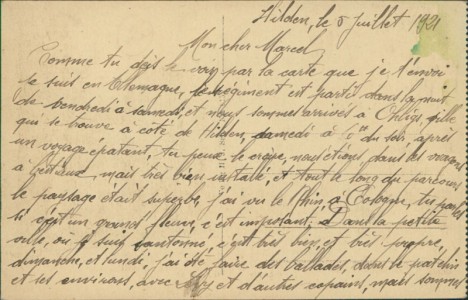 Hilden, le 5 Juillet 1921
Mon cher Marcel
Comme tu dois le voir par la carte que je t'envoi
je suis en Allemagne, le régiment est parti dans la nuit
de vendredi à samedi, et nous sommes arrivés à Ohligs, ville
qui se trouve à coté de Hilden, samedi à du soir, après
un voyage épatant, tu peux le croire, nous étions dans les wagons
à bestiaux mais très bien installé, et tout le long du parcours
le paysage était superbe, j'ai vu le Rhin, à Cologne, tu parles
si c'est un grand fleuve, c'est imposant. Dans la petite
ville, ou je suis cantonné, c'est très bien, et très propre,
dimanche, et lundi, j'ai été faire des ballades, dans le patelin
et ses environs, avec et d'autres copains, mais sommes